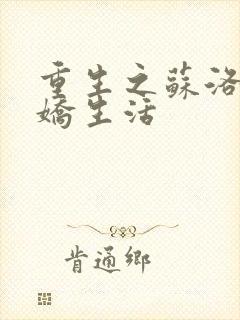 重生之蘇洛
嬌生活
肯通鄉